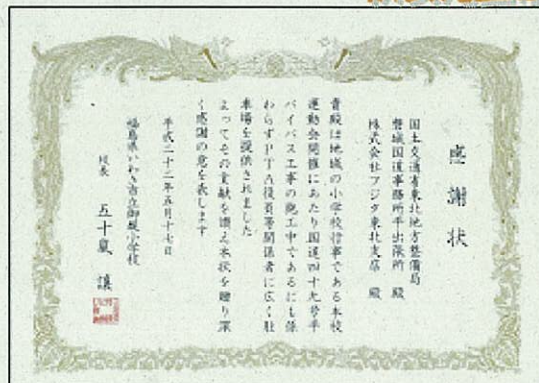 感謝状
国土交通省東北地方整備局
磐城国道事務所平出張所 殿
株式会社フジタ東北支店 殿
貴殿は地域の小学校行事である本校
運動会開催にあたり国道四十九号平
バイパス工事の施工中であるにも係
わらずPTA役員等関係者に広く駐
車場を提供されました
よってその貢献を讃え本状を贈り深
く感謝の意を表します
平成二十二年五月十七日
福島県いわき市立御厩小学校
校長 五十嵐 譲